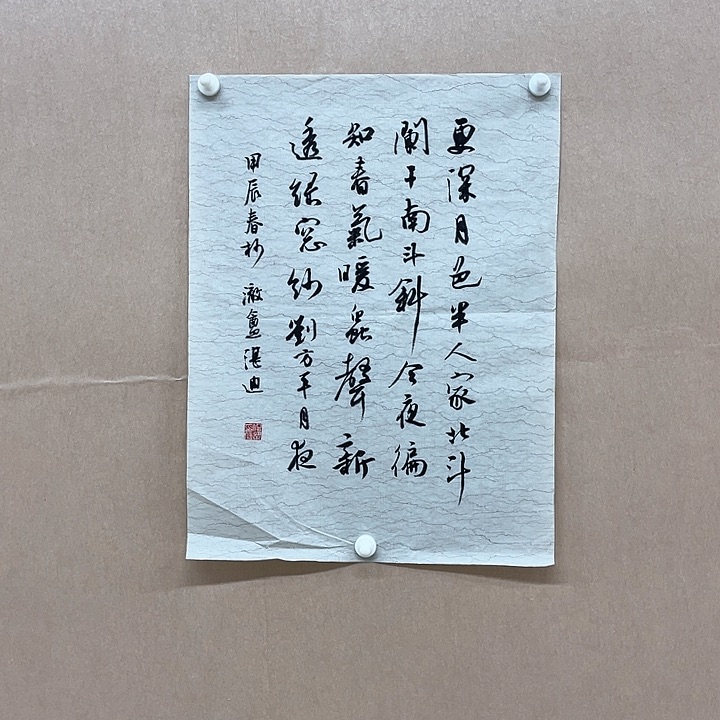 更深月色半人家北斗
闌干南斗斜今夜徧
知春氣暖蟲聲新
透綠窓紗劉方平月夜
甲辰春杪澂盦湛迪